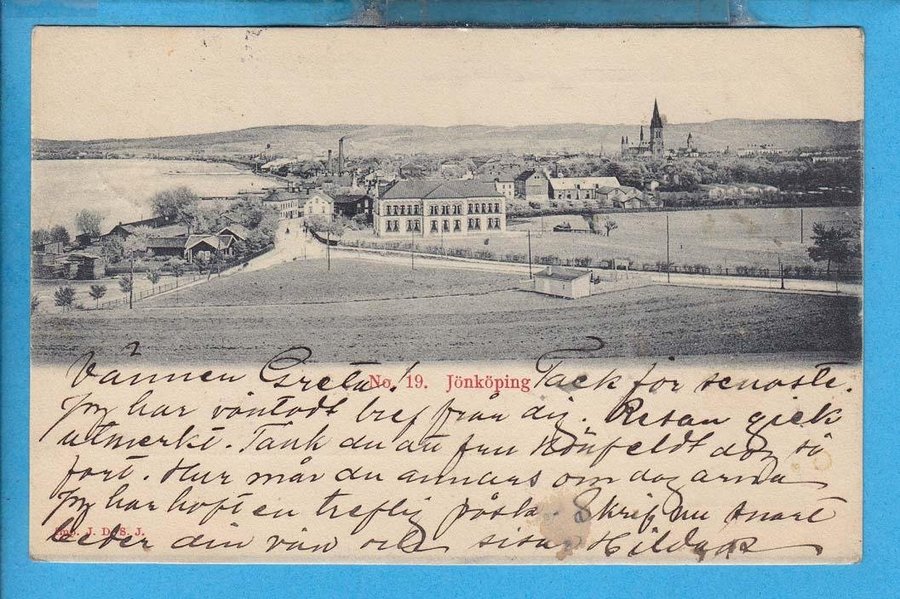 Vännen Greta! Tack för senaste.
No. 19. Jönköping
Jag har väntadt bref från dig. Resan gick
utmerkt. Tänk du att fru Rönfeldt dog så
fort. Hur mår du annars om dagarna
Jag har haft en treflig påsk. Skrif nu snart
beder din vän och Hilda
J. D. S. J.